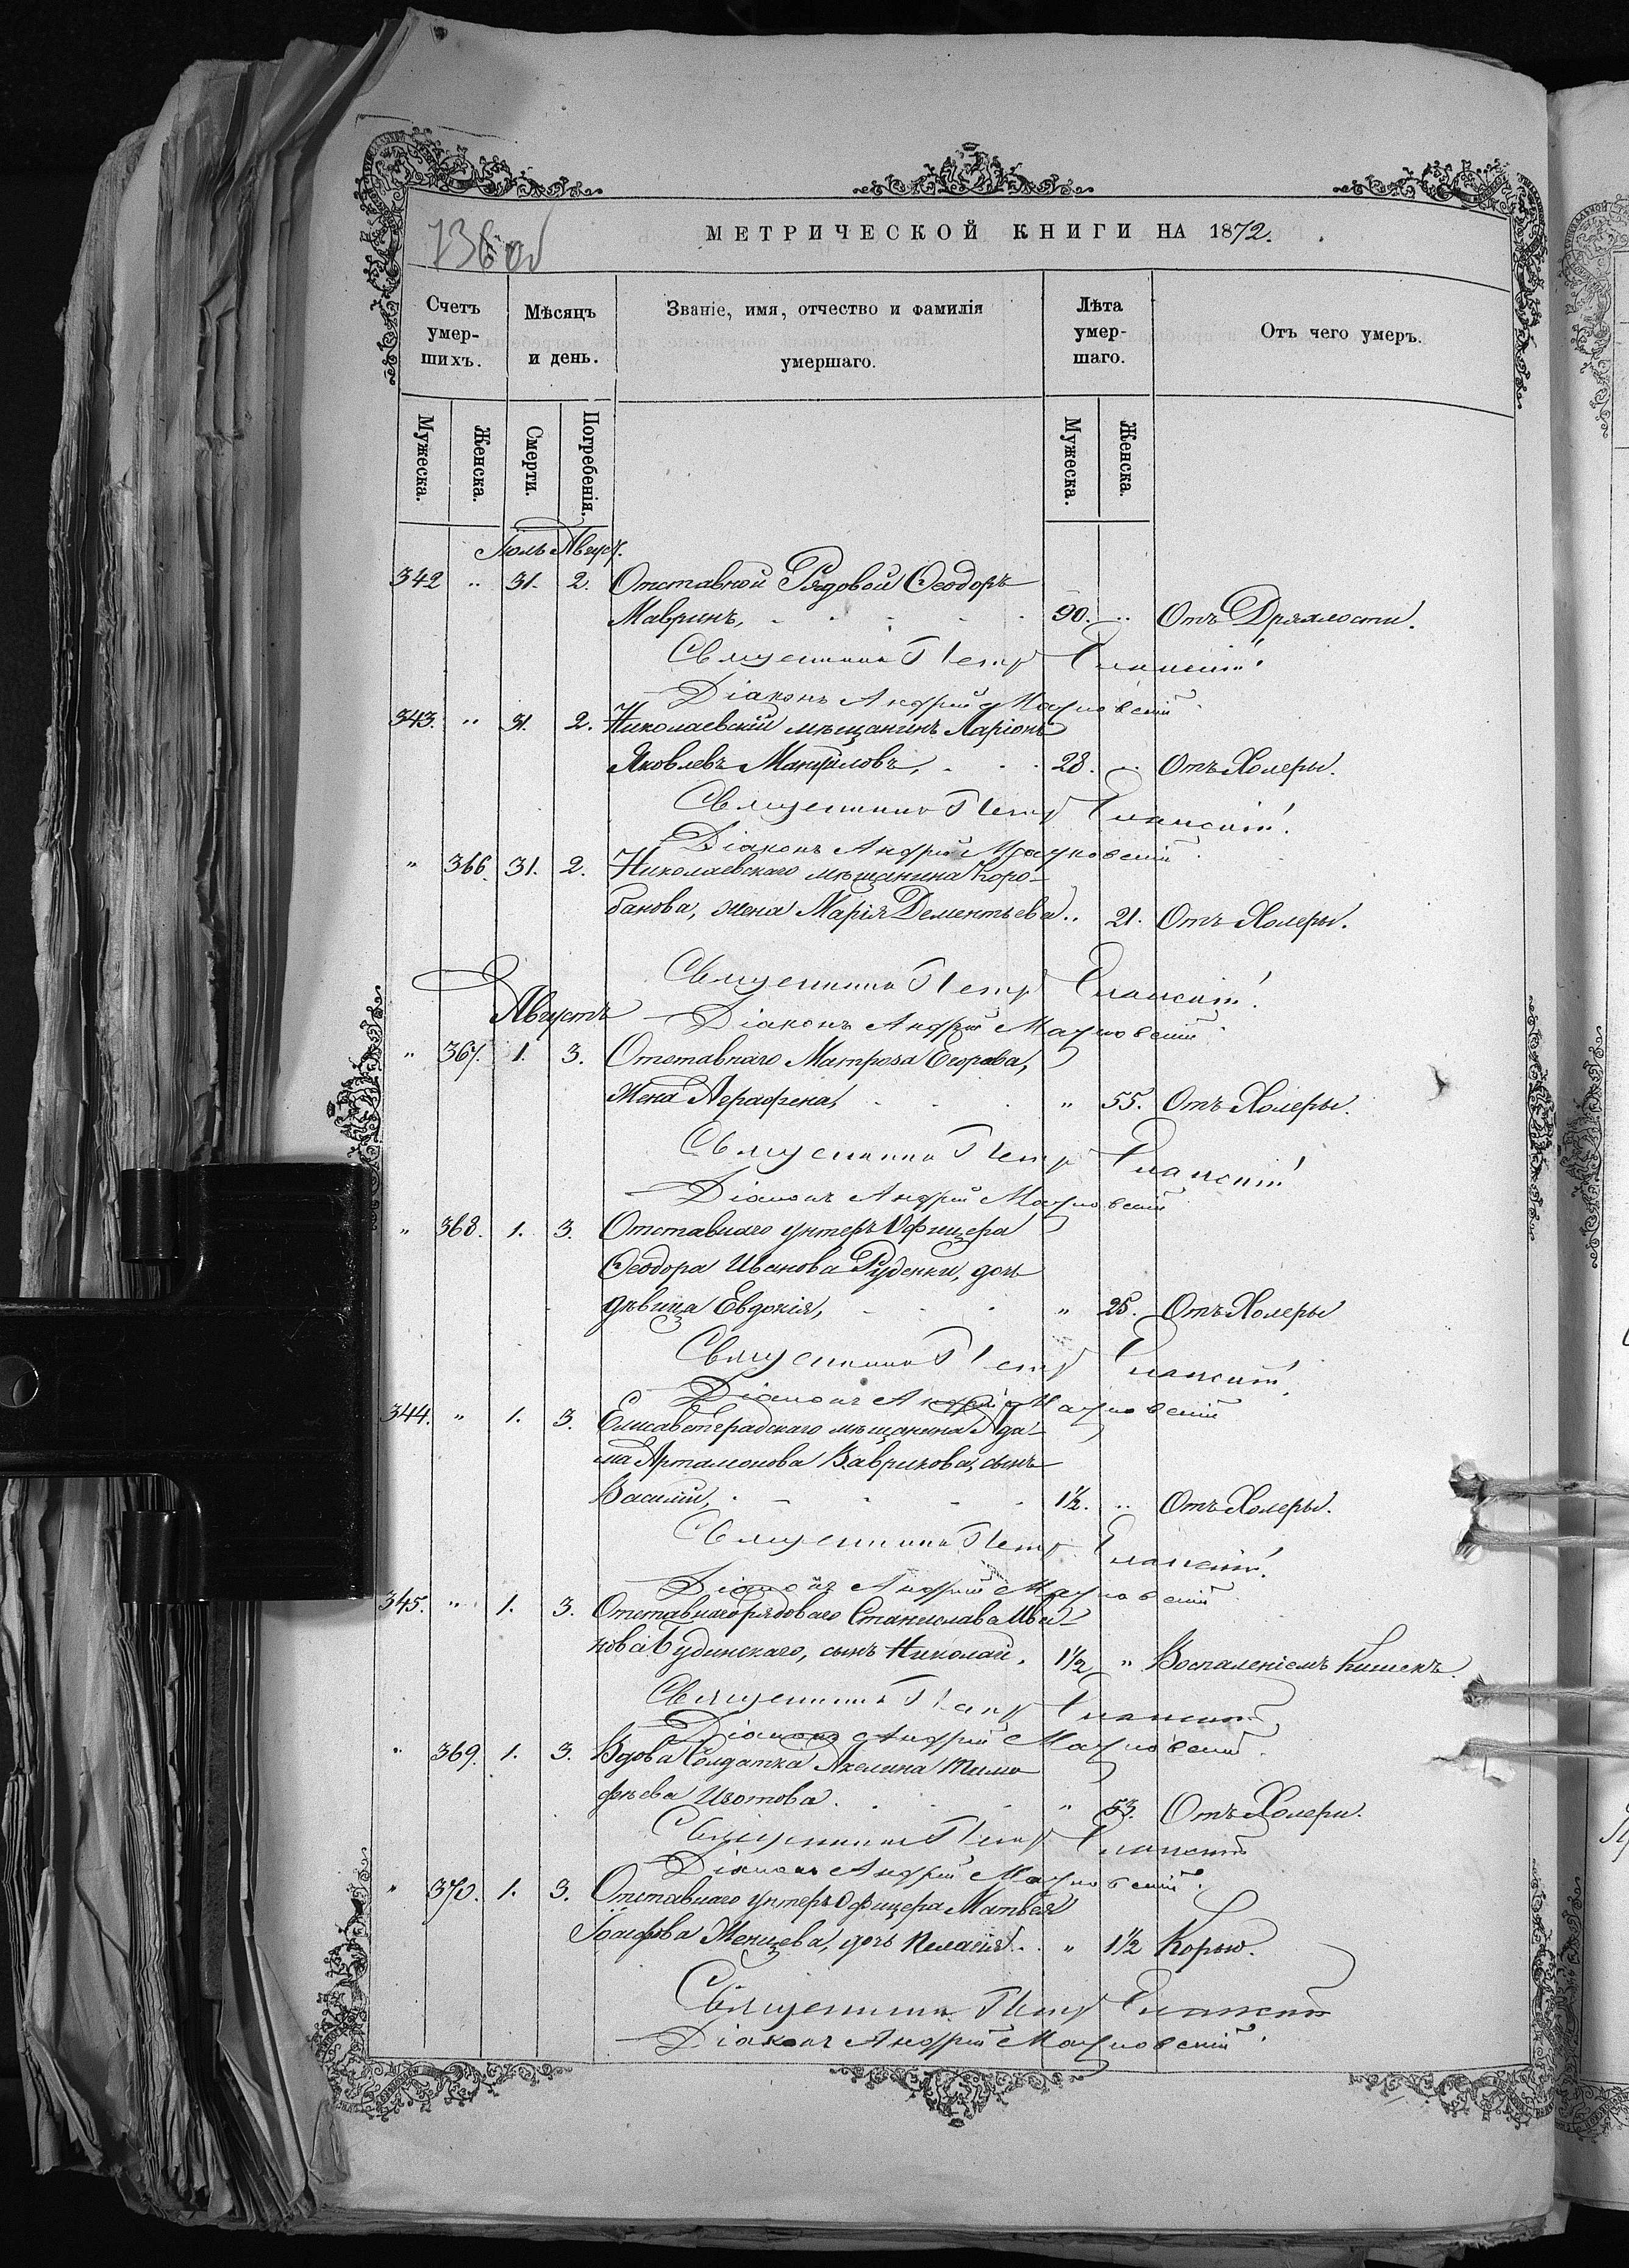 736 об
МЕТРИЧЕСКОЙ КНИГИ НА 1872.
Счетъ умер- шихъ.
Мѣсяцъ и день.
Званіе, имя, отчество и фамилія умершаго.
Лѣта умер- шаго.
Отъ чего умеръ.
Мужеска. Женска. Смерти. Погребенія. Мужеска. Женска.
Іюль Август.
342 " 31. 2. Отставной Рядовой Ѳеодоръ
Мавринъ, 90. " Отъ Дряхлости.
Священникъ Петръ
Діаконъ Андрей
343. " 31. 2. Николаевскій мѣщанинъ Ларіонъ
Яковлевъ 28. " Отъ Холеры.
Священникъ Петръ
Діаконъ Андрей
" 366. 31. 2. Николаевскаго мѣщанина Коро-
банова, жена Марія Дементьева " 21. Отъ Холеры.
Священникъ Петръ
Августъ
Діаконъ Андрей
" 367. 1. 3. Отставнаго Матроза Егорова,
Жена Аграфена, " 55. Отъ Холеры.
Священникъ Петръ
Діаконъ Андрей
" 368. 1. 3. Отставнаго унтеръ Офицера
Ѳеодора Иванова Руденки, дочь
дѣвица Евдокія, " 25. Отъ Холеры
Священникъ Петръ
Діаконъ Андрей
344. " 1. 3. Елисаветградскаго мѣщанина Ада-
ма Артамонова Ваврикова, сынъ
Василій, 1½. " Отъ Холеры.
Священникъ Петръ
Діаконъ Андрей
345. " 1. 3. Отставнаго рядоваго Станислава Ива-
нова Будинскаго, сынъ Николай, 1½ " Воспаленіемъ Кишекъ.
Священникъ Петръ
Діаконъ Андрей
" 369. 1. 3. Вдова Солдатка Акелина Тимо
фѣева Изотова " 53. Отъ Холеры.
Священникъ Петръ
Діаконъ Андрей
" 370. 1. 3. Отставнаго унтеръ Офицера Матвея
Женцева, дочь Пелагія. " 1½ Корью.
Священникъ Петръ
Діаконъ Андрей